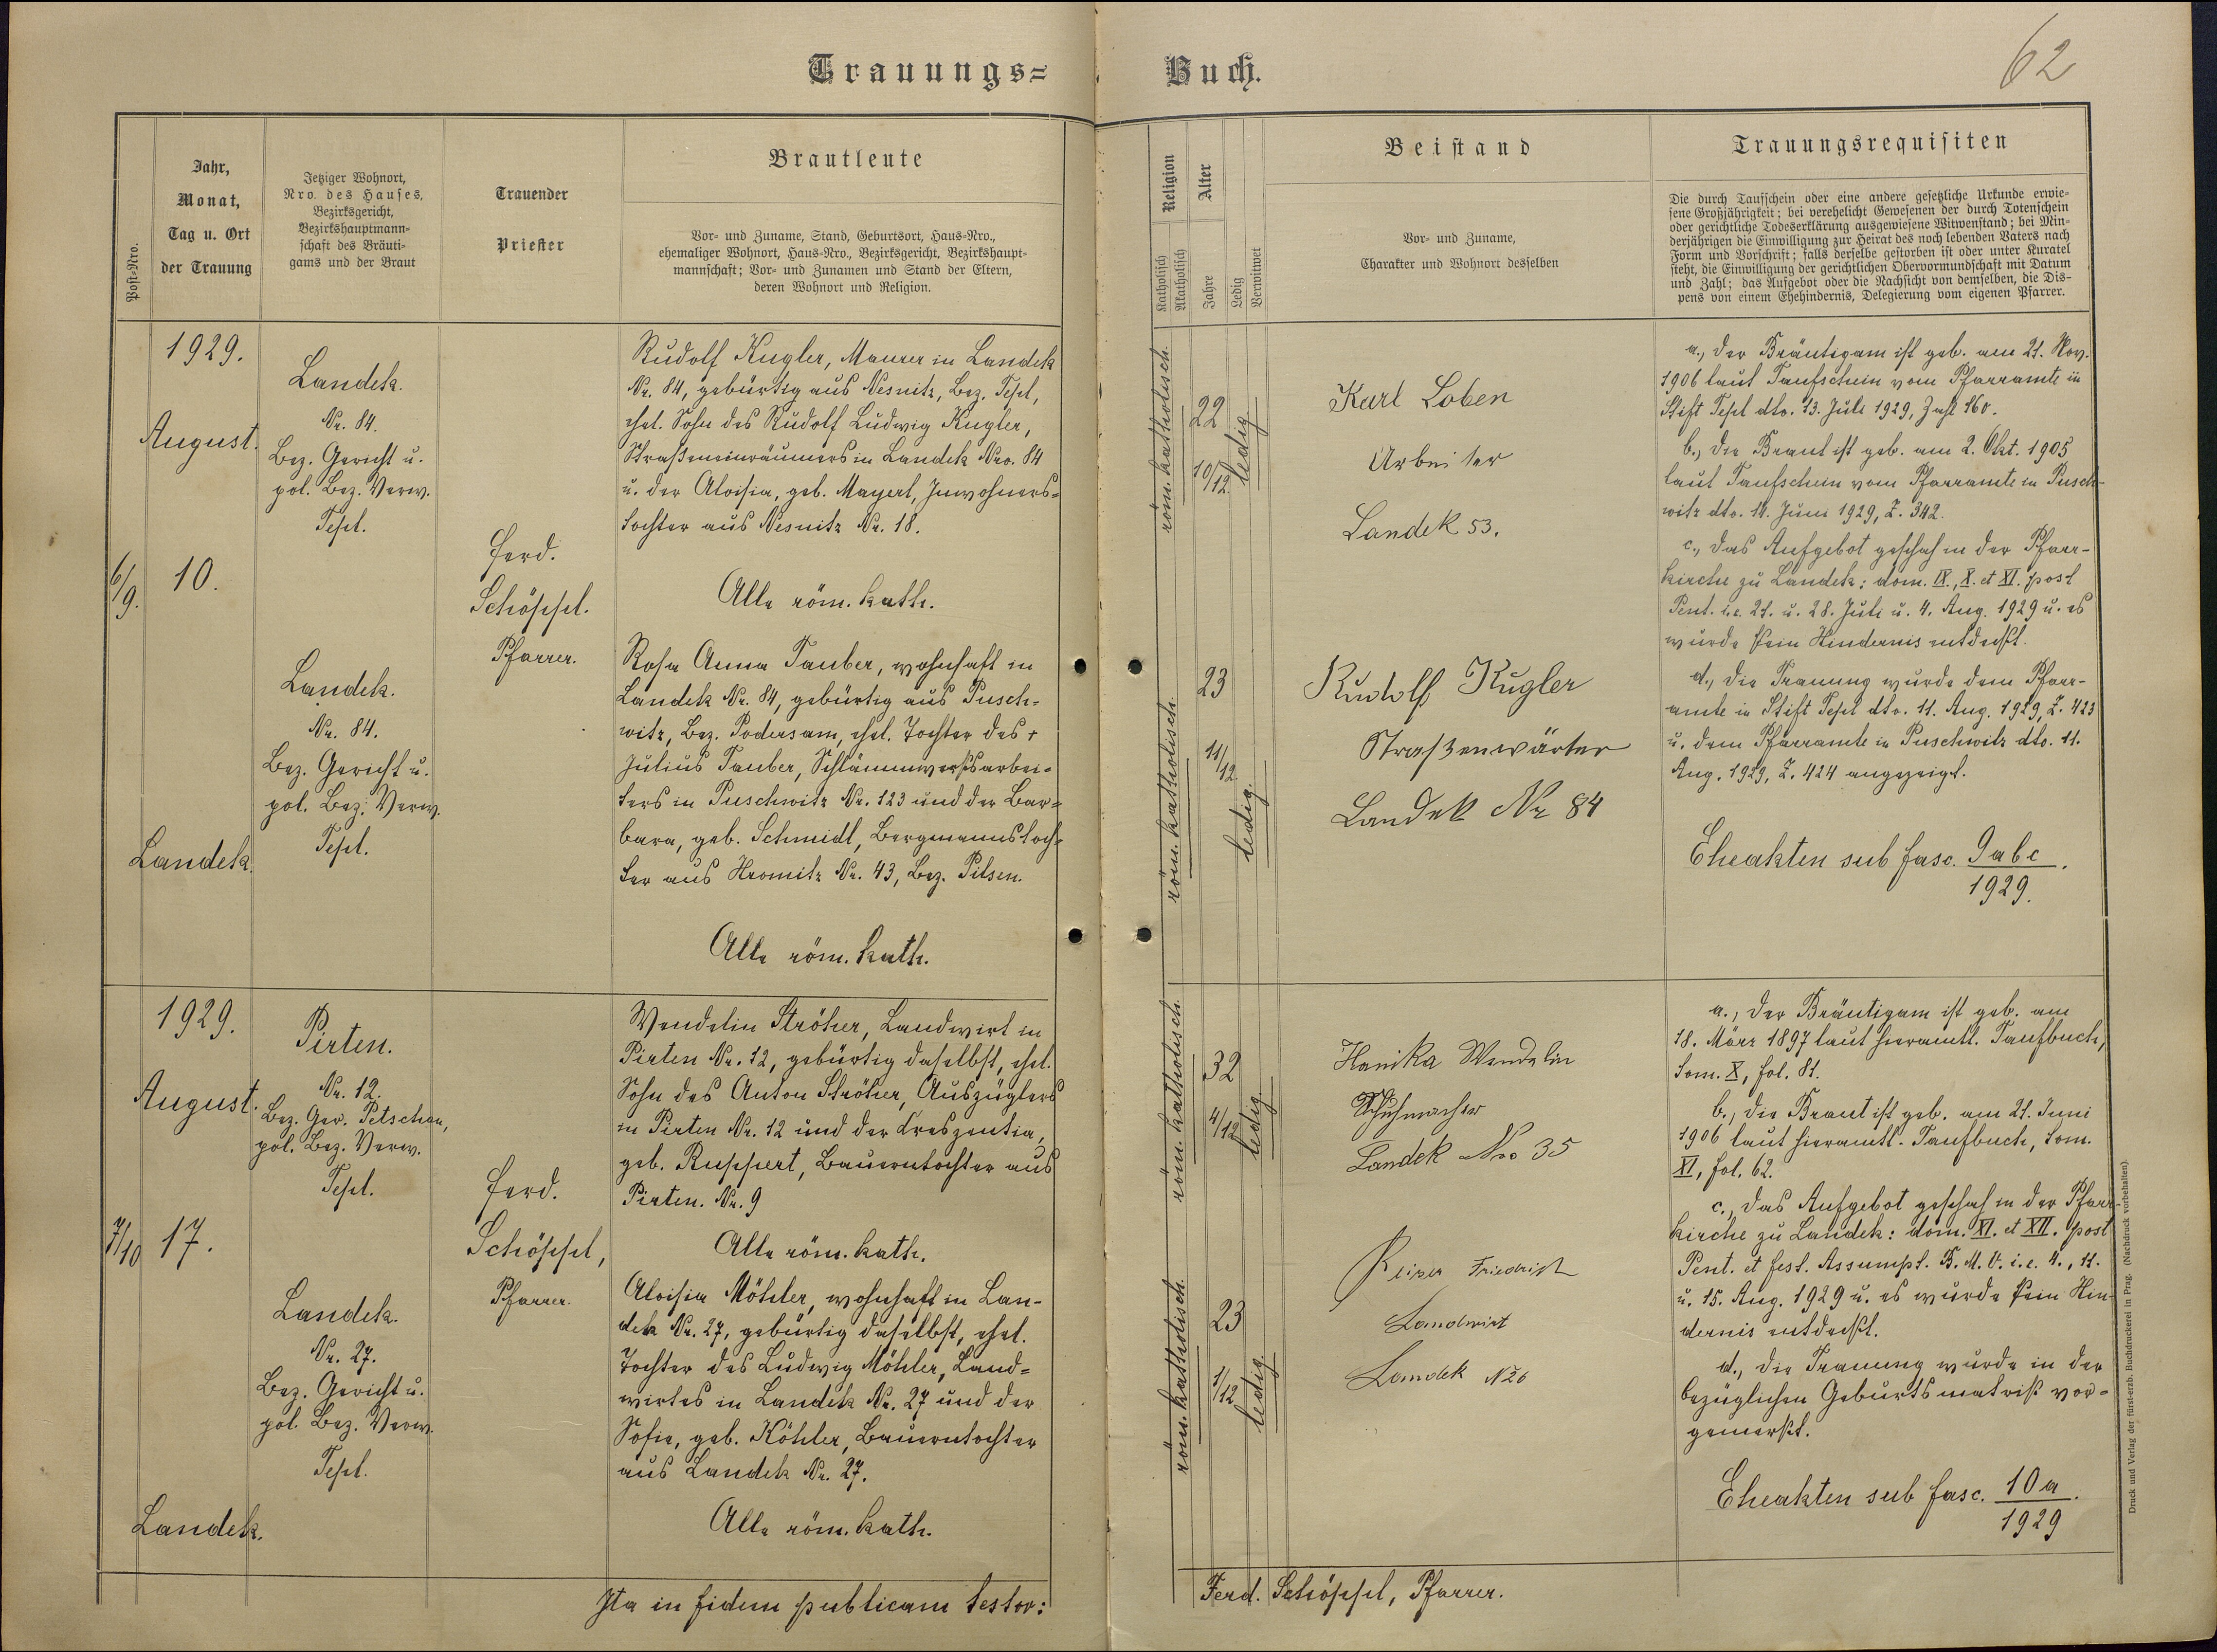 Trauungs=
Buch.
62
Post-Nro.
Jahr,
Monat,
Tag u. Ort
der Trauung
Jetziger Wohnort,
Nro. des Hauses,
Bezirksgericht,
Bezirkshauptmann-
schaft des Bräuti-
gams und der Braut
Trauender
Priester
Brautleute
Vor- und Zuname, Stand, Geburtsort, Haus-Nro.,
ehemaliger Wohnort, Haus-Nro., Bezirksgericht, Bezirkshaupt-
mannschaft; Vor- und Zunamen und Stand der Eltern,
deren Wohnort und Religion.
Religion
Katholisch
Akatholisch
Alter
Jahre
Ledig
Verwitwet
Beistand
Vor- und Zuname,
Charakter und Wohnort desselben
Trauungsrequisiten
Die durch Taufschein oder eine andere gesetzliche Urkunde erwie-
sene Großjährigkeit; bei verehelicht Gewesenen der durch Totenschein
oder gerichtliche Todeserklärung ausgewiesene Witwenstand; bei Min-
derjährigen die Einwilligung zur Heirat des noch lebenden Vaters nach
Form und Vorschrift; falls derselbe gestorben ist oder unter Kuratel
steht, die Einwilligung der gerichtlichen Obervormundschaft mit Datum
und Zahl; das Aufgebot oder die Nachsicht von demselben, die Dis-
pens von einem Ehehindernis, Delegierung vom eigenen Pfarrer.
6/9.
1929.
August.
10.
Landek.
Landek.
Nr. 84.
Bez. Gericht u.
pol. Bez. Verw.
Tepl.
Landek.
Nr. 84.
Bez. Gericht u.
pol. Bez. Verw.
Tepl.
Ferd.
Schöppl.
Pfarrer.
Rudolf Kugler, Maurer in Landek
Nr. 84, gebürtig aus Nesnitz, Bez. Tepl,
ehel. Sohn des Rudolf Ludwig Kugler,
Straßeneinräumers in Landek Nro. 84
u. der Aloisia, geb. Mayerl, Inwohners=
tochter aus Nesnitz Nr. 18.
Alle röm. kath.
Rosa Anna Tauber, wohnhaft in
Landek Nr. 84, gebürtig aus Pusch=
witz, Bez. Podersam, ehel. Tochter des +
Julius Tauber, Schlämmwerksarbei=
ters in Puschwitz Nr. 123 und der Bar=
bara, geb. Schmidt, Bergmannstoch=
ter aus Hromitz Nr. 43, Bez. Pilsen.
Alle röm. kath.
röm. katholisch.
22
10/12.
ledig
röm. katholisch.
23
11/12
ledig.
Karl Loben
Arbeiter
Landek 53.
Rudolf Kugler
Straßenwärter
Landek Nr 84
a., der Bräutigam ist geb. am 21. Nov.
1906 laut Taufschein vom Pfarramte in
Stift Tepl dto. 13. Juli 1929, Zahl 160.
b., die Braut ist geb. am 2. Okt. 1905
laut Taufschein vom Pfarramte in Pusch-
witz dto. 14. Juni 1929, Z. 342.
c., das Aufgebot geschah in der Pfarr-
kirche zu Landek: dom. IX., X. et XI. post
Pent. i.e. 21. u. 28. Juli u. 4. Aug. 1929 u. es
wurde kein Hindernis entdeckt.
d., die Trauung wurde dem Pfarr-
amte in Stift Tepl dto. 11. Aug. 1929, Z. 423
u. dem Pfarramte in Puschwitz dto. 11.
Aug. 1929, Z. 424 angezeigt.
Eheakten sub fasc. 9abc/1929.
7/10
1929.
August.
17.
Landek.
Pirten.
Nr. 12.
Bez. Ger. Petschau,
pol. Bez. Verw.
Tepl.
Landek.
Nr. 27.
Bez. Gericht u.
pol. Bez. Verw.
Tepl.
Ferd.
Schöppl,
Pfarrer.
Wendelin Ströher, Landwirt in
Pirten Nr. 12, gebürtig daselbst, ehel.
Sohn des Anton Ströher, Auszüglers
in Pirten Nr. 12 und der Kreszentia,
geb. Ruppert, Bauerntochter aus
Pirten. Nr. 9
Alle röm. kath.
Aloisia Möhler, wohnhaft in Lan-
dek Nr. 27, gebürtig daselbst, ehel.
Tochter des Ludwig Möhler, Land=
wirtes in Landek Nr. 27 und der
Sofie, geb. Köhler, Bauerntochter
aus Landek Nr. 27.
Alle röm. kath.
röm. katholisch.
32
4/12
ledig.
röm. katholisch.
23
1/12
ledig.
Hanika Wendelin
Schuhmacher
Landek Nro 35
Friedrich
Landwirt
Landek N26
a., der Bräutigam ist geb. am
18. März 1897 laut hieramtl. Taufbuch,
tom. X, fol. 81.
b., die Braut ist geb. am 21. Juni
1906 laut hieramtl. Taufbuch, tom.
XI, fol. 62.
c., das Aufgebot geschah in der Pfarr-
kirche zu Landek: dom. XI. et XII. post
Pent. et fest. Assumpt. B. M. V. i.e. 4., 11.
u. 15. Aug. 1929 u. es wurde kein Hin-
dernis entdeckt.
d., die Trauung wurde in der
bezüglichen Geburtsmatrik vor=
gemerkt.
Eheakten sub fasc. 10a/1929.
Ita in fidem publicam testor:
Ferd. Schöppl, Pfarrer.
Druck und Verlag der fürst-erzb. Buchdruckerei in Prag. (Nachdruck vorbehalten).